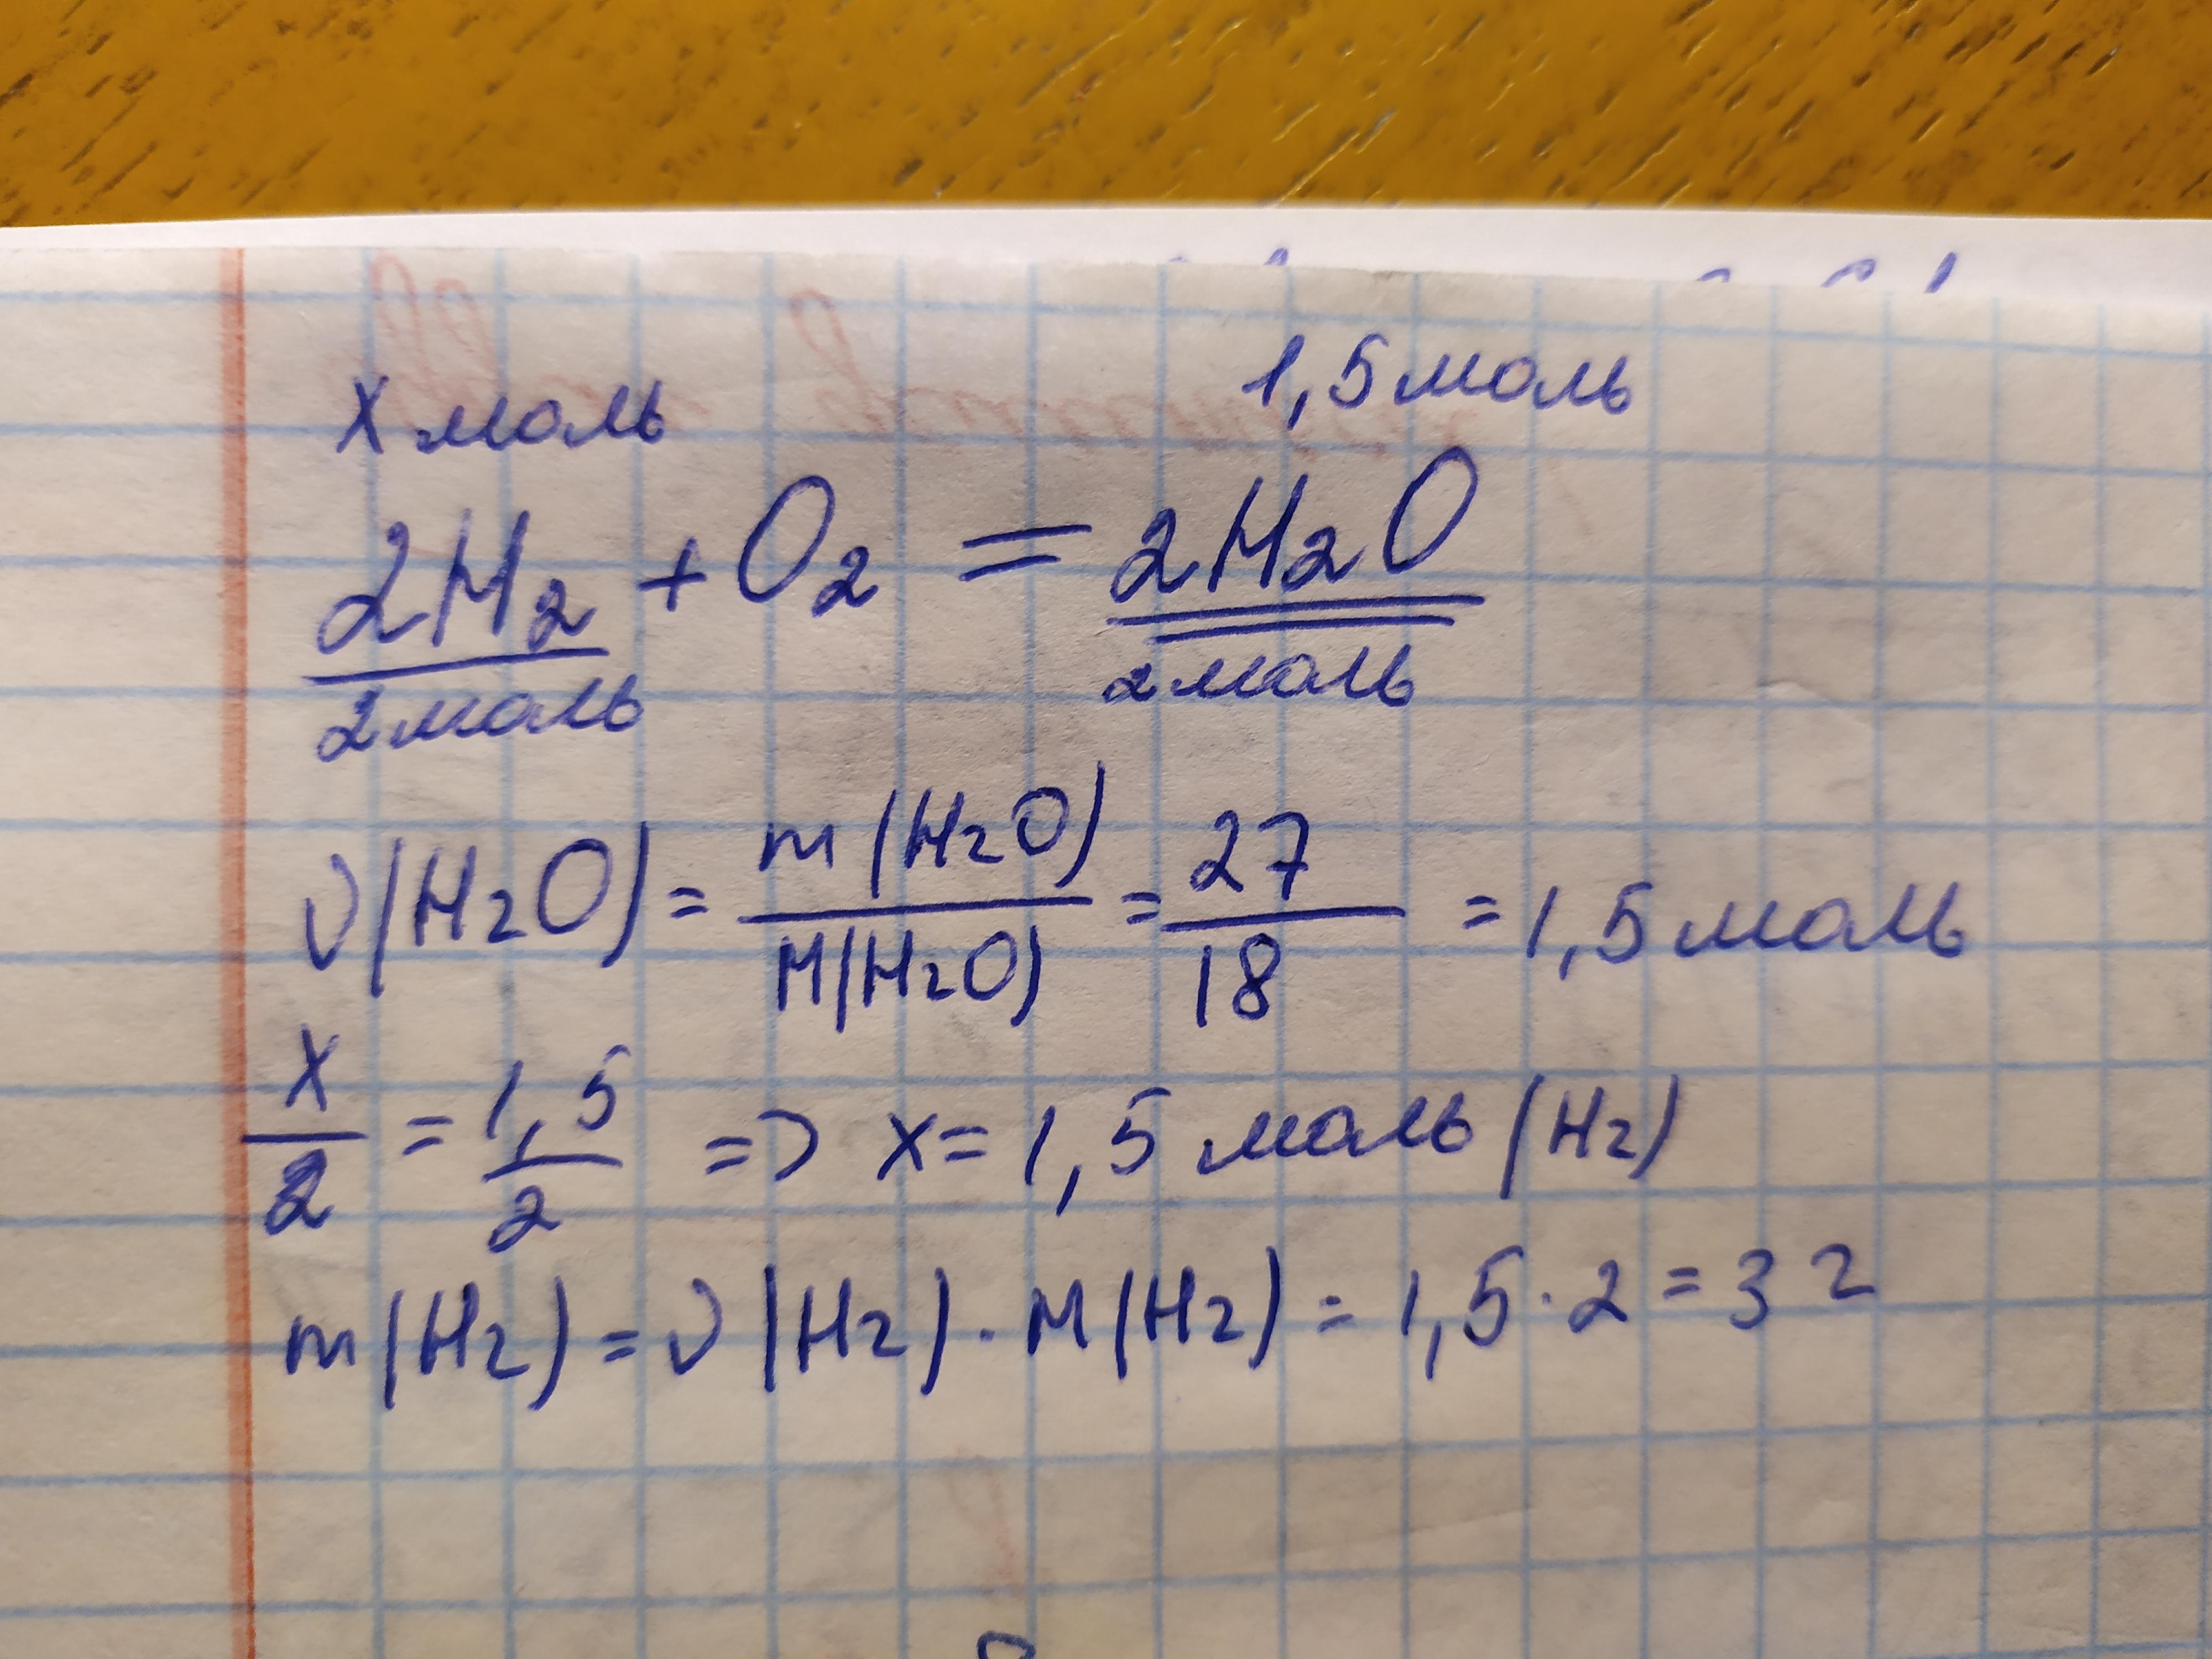 x моль 1,5 моль
2H₂ + O₂ = 2H₂O
2 моль 2 моль
ν(H₂O) = m(H₂O)/M(H₂O) = 27/18 = 1,5 моль
x/2 = 1,5/2 => x = 1,5 моль (H₂)
m(H₂) = ν(H₂) · M(H₂) = 1,5 · 2 = 3 г